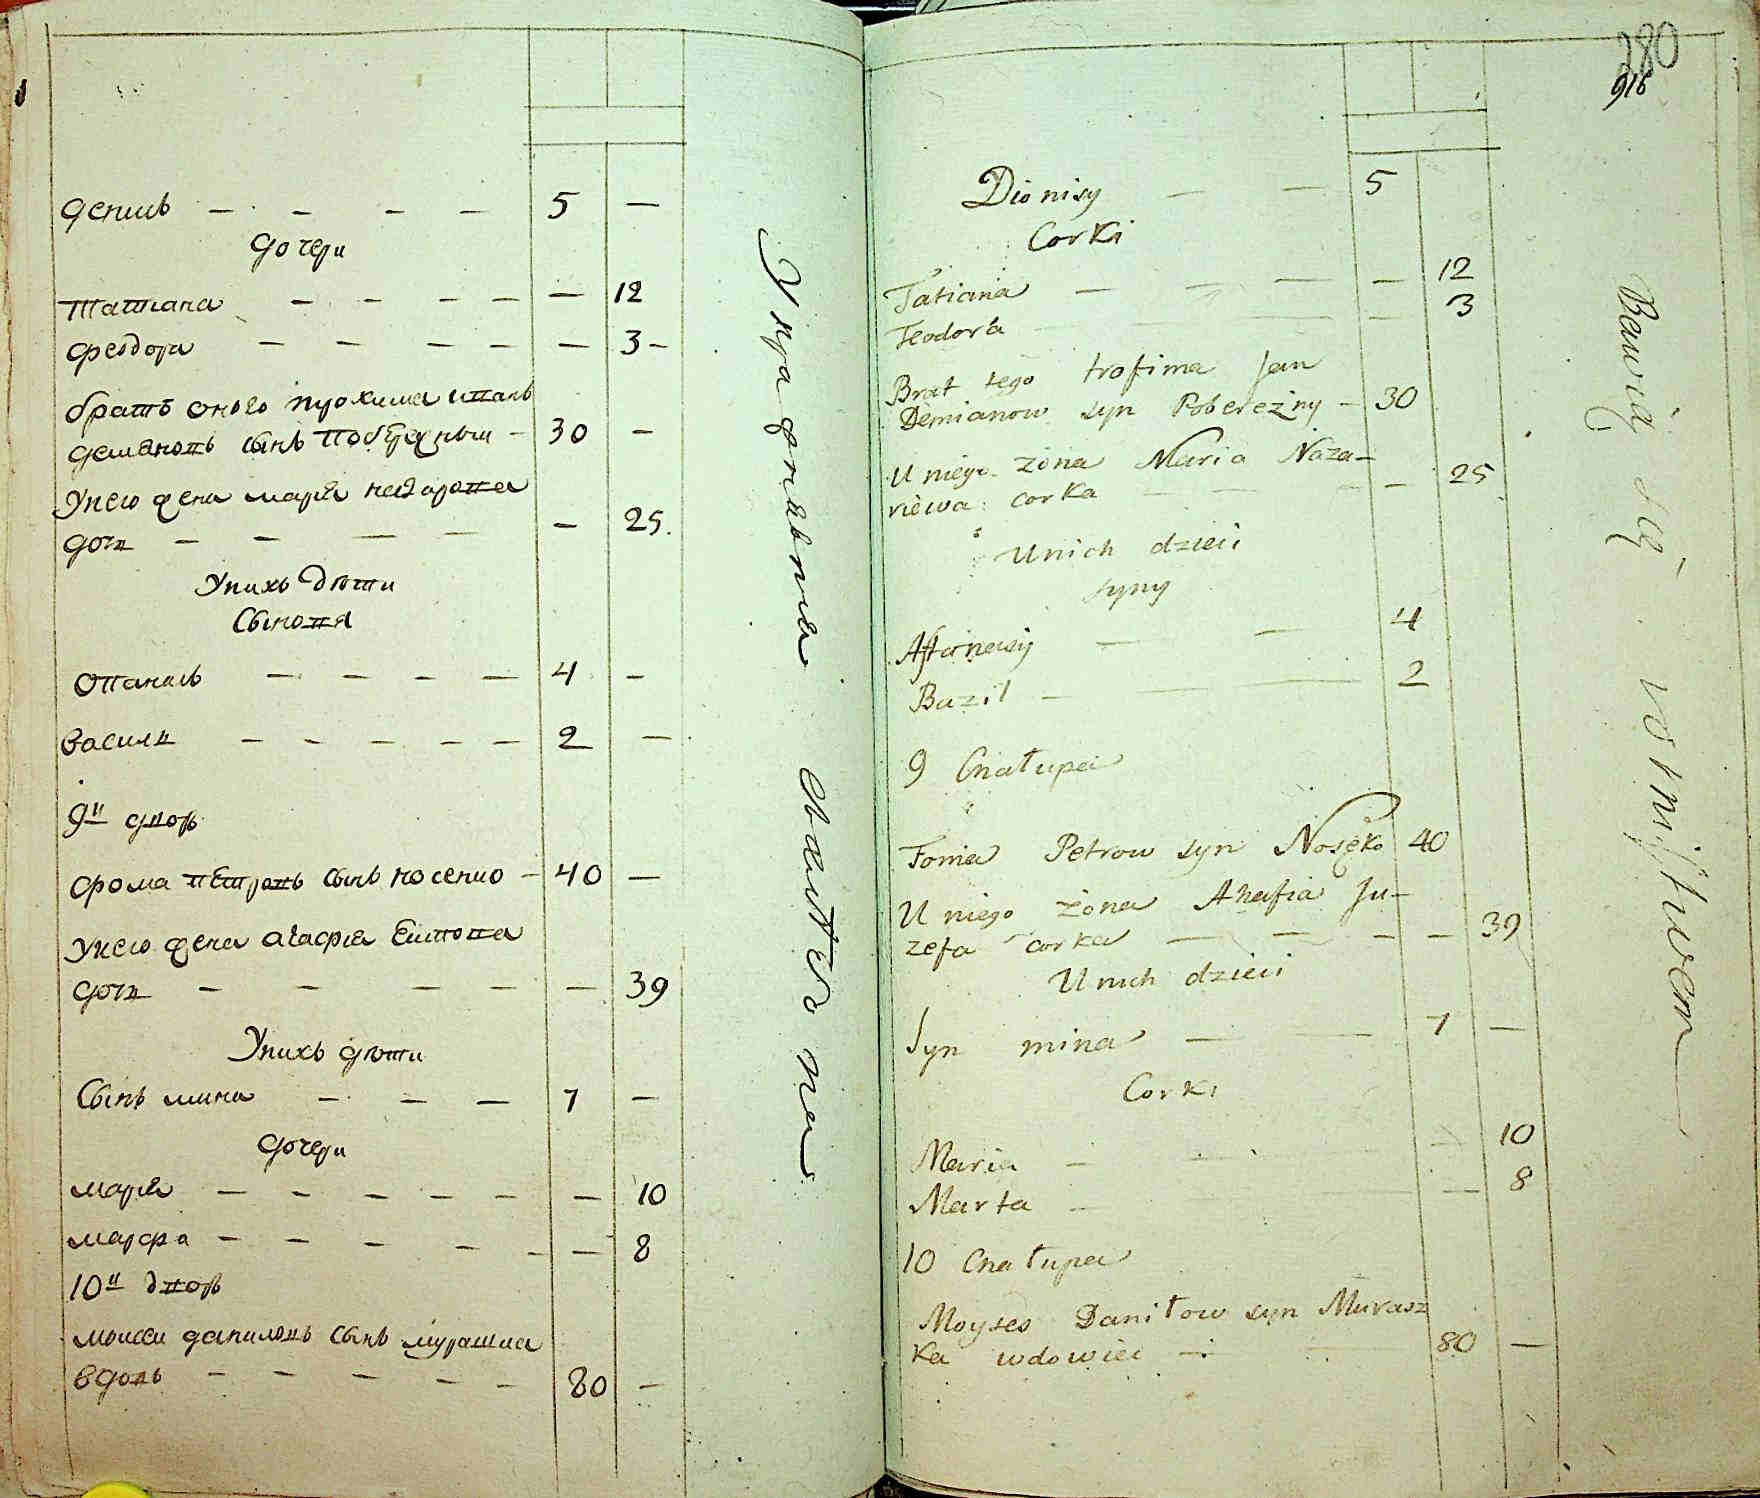 денисъ — — — — 5 —
дочери
татиана — — — — — 12
феодора — — — — — 3 —
братъ оного трохима иванъ
демяновъ сынъ побережный — 30 —
Унего жена мария назарова
дочь — — — — — 25.
Унихъ дѣти
Сынова
Опанасъ — — — — 4 —
василй — — — — — 2 —
9й дворъ
фома петровъ сынъ носенко — 40 —
Унего жена агафия
дочь — — — — — 39
Унихъ дѣти
Сынъ мина — — — 7 —
дочери
мария — — — — — — 10
марфа — — — — — — 8
10й дворъ
моисей даниловъ сынъ мурашка
вдовъ — — — — — 80 —
Упражняется
280
916
Dionisy — — 5
Corki
Tatiana — — — — 12
Teodora — — — 3
Brat tego trofima Jan
Demianow syn Pobereżny — 30
U niego żona Maria Naza-
riewa corka — — — — 25
U nich dzieci
syny
Affanasy — — 4
Bazil — — — 2
9 Chałupa
Foma Petrow syn Nosęko 40
U niego żona Ahafia Ju-
zefa corka — — — — 39
U nich dzieci
Syn mina — — 7 —
Corki
Maria — — — — 10
Marta — — — 8
10 Chałupa
Moyses Daniłow syn Murasz
ka wdowiec — — 80 —
Bawią się